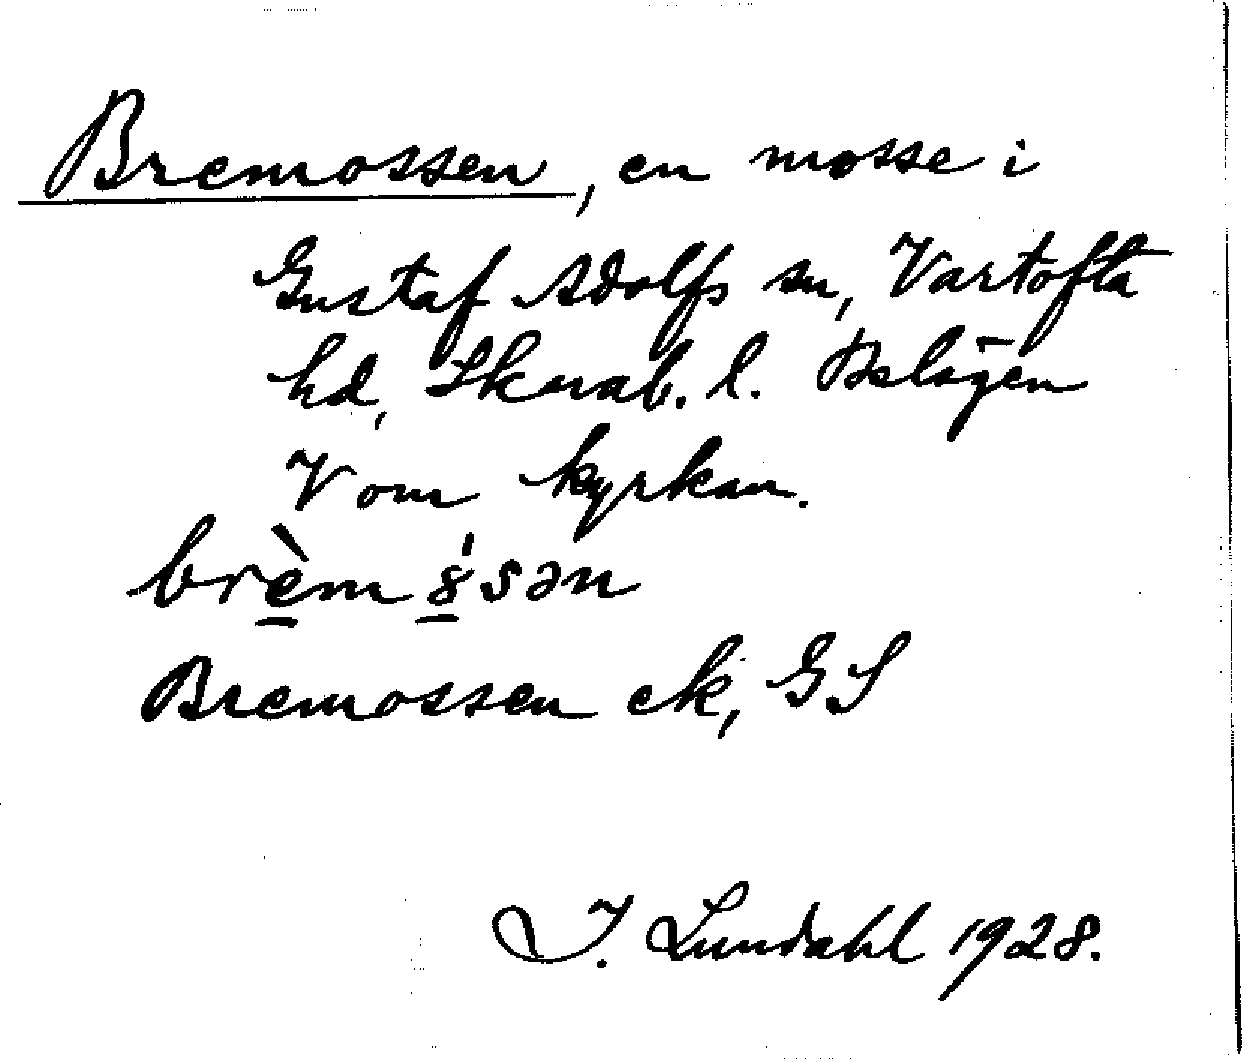 Bremossen, en mosse i
Gustaf Adolfs sn, Vartofta
hd, Skarab. l. Belägen
V om kyrkan.
brè̠m 8̠́sən
Bremossen ek, GS
I. Lundahl 1928.